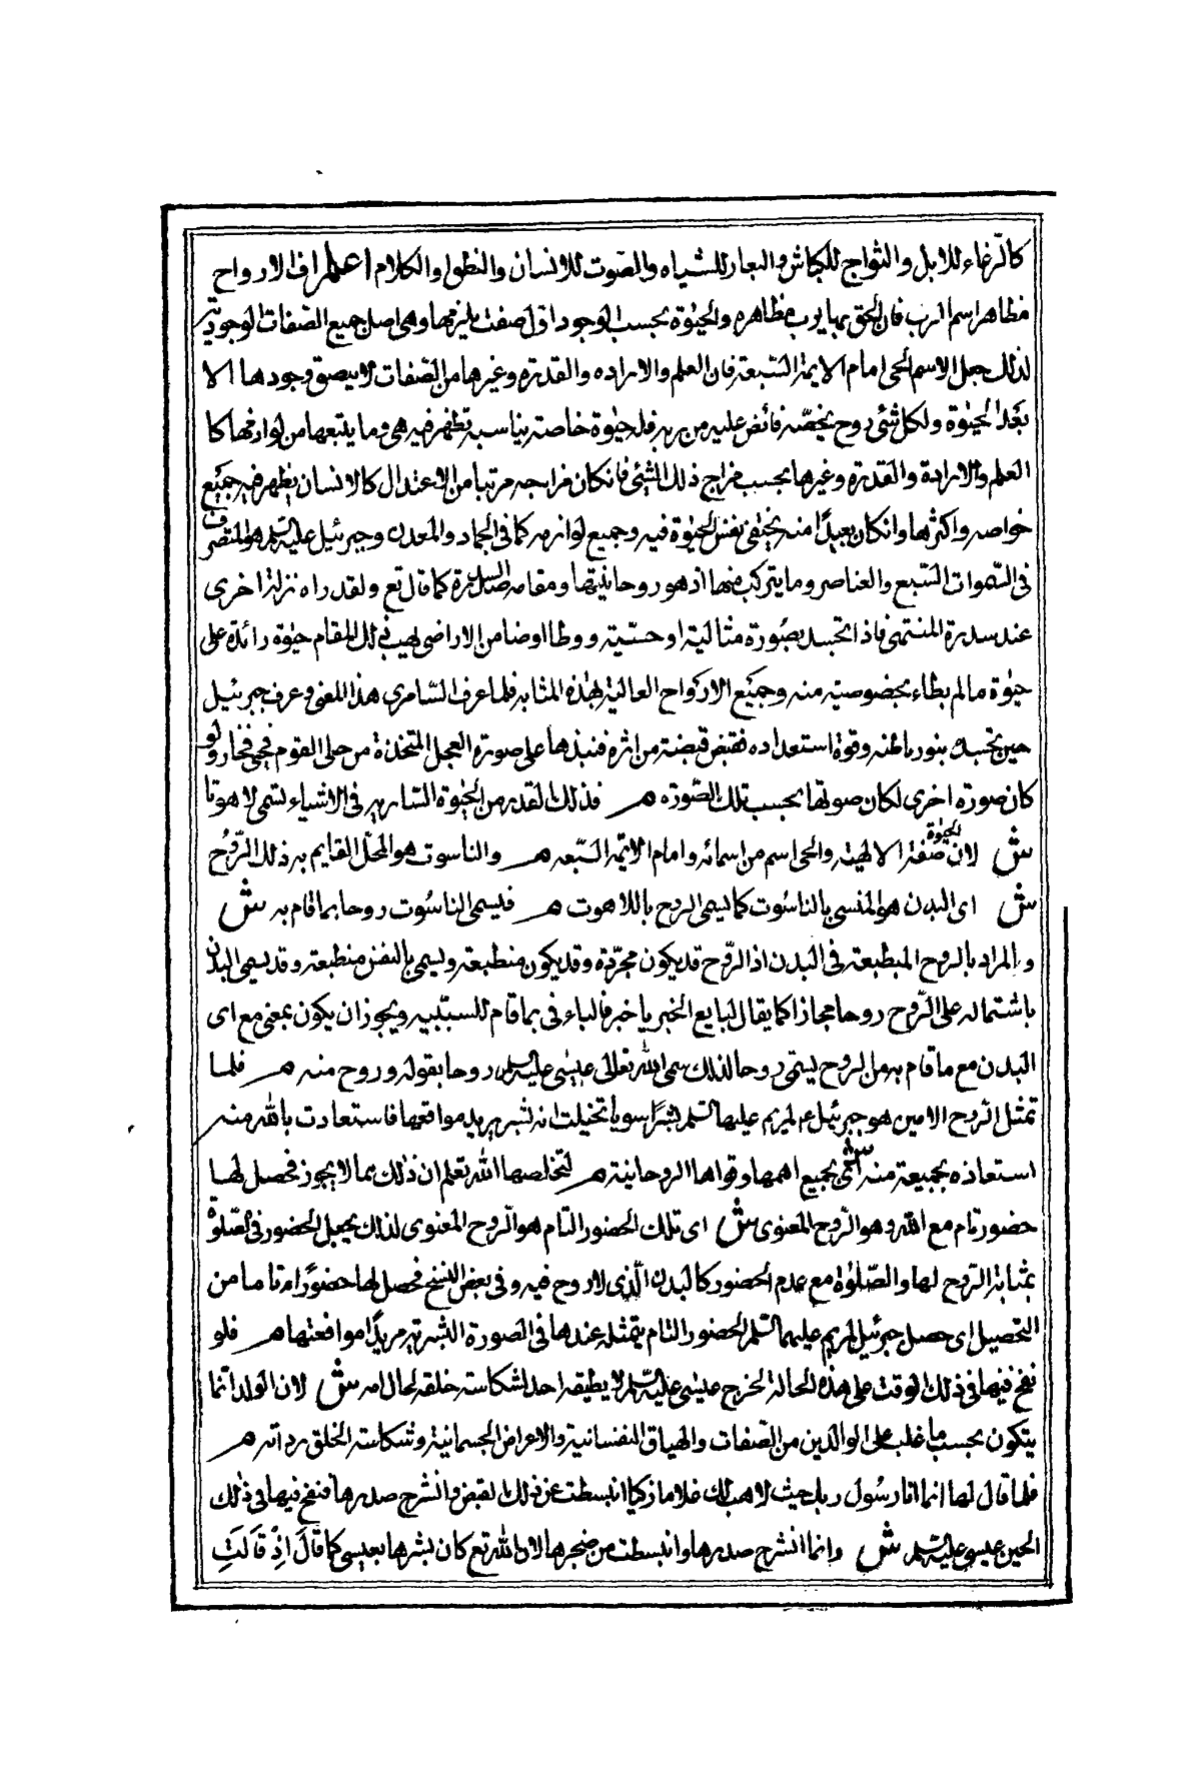 كالرغاء للابل والثواج للكباش والبعار للشياه والصوت للانسان والنطق او الكلام اعلم ان الارواح
مظاهر اسم الرب فان الحق بها يرب مظاهره والحيوة بحسب الوجود اول صفت يلزمها وهى اصل جميع الصفات الوجودية
لذلك جعل الاسم الحى امام الايمة السبعة فان العلم والاراده والقدرة وغيرها من الصفات لا يتصور وجودها الا
بعد الحيوة ولكل شئى روح يخصّه فائض عليه من ربه فله حيوة خاصة يناسبه تظهر فيه هى وما يتبعها من لوازمها كا
العلم والارادة والقدرة وغيرها بحسب مزاج ذلك الشئى فانكان مزاجه قريبا من الاعتدال كالانسان يظهر فيه جميع
خواصه واكثرها وانكان بعيدًا منه يختفى نفس الحيوة فيه وجميع لوازمه كما فى الجماد والمعدن وجبرئيل عليه السلم هو المتصرف
فى السموات السبع والعناصر وما يتركب منها اذ هو روحانيتها ومقامه السدرة كما قال تع ولقد راه نزلة اخرى
عند سدرة المنتهى فاذا تجسد بصورة مثالية او حسية ووطا ارضا من الاراضى يهب فى ذلك المقام حيوة زائدة على
حيوة مالم يطاء بخصوصيته منه وجميع الارواح العالية بهذه المثابه فلما عرف السامرى هذا المعنى وعرف جبرئيل
حين تجسده بنور باطنه وقوة استعداده فقبض قبضة من اثره فنبذها على صورة العجل المتخذة من حلى القوم فحيى فخار ولو
كان صورة اخرى لكان صوتها بحسب تلك الصورة م فذلك القدر من الحيوة السارية فى الاشياء يسمى لاهوتا
ش لان الحيوة صفة الالهية والحى اسم من اسمائه وامام الائمة السبعه م والناسوت هو المحل القايم به ذلك الروح
ش اى البدن هو المسمى بالناسوت كما يسمى الروح باللاهوت م فيسمى الناسوت روحا بما قام به ش
والمراد بالروح المنطبعة فى البدن اذ الروح قد يكون مجردة وقد يكون منطبعة ويسمى بالنفس منطبعة وقد يسمى البدن
باشتماله على الروح روحا مجازا كما يقال لبايع الخبز يا خبز فالباء فى بما قام للسببيه ويجوز ان يكون بمعنى مع اى
البدن مع ما قام به من الروح يسمى روحا لذلك سمى الله تعالى عيسى عليه السلم روحا بقوله وروح منه م فلما
تمثل الروح الامين هو جبرئيل ع لمريم عليها السلم بشرًا سويا تخيلت انه بشر يريد مواقعها فاستعاذت بالله منه
استعاذه بجميعة منه ش اى بجميع اهمها وقواها الروحانية م لتخلصها الله تعلم ان ذلك مما لا يجوز فحصل لها
حضور تام مع الله وهو الروح المعنوى ش اى تلك الحضور التام هو الروح المعنوى لذلك يجعل الحضور فى الصلوة
بمثابة الروح لها والصلوة مع عدم الحضور كالبدن الذى لا روح فيه وفى بعض النسخ فحصل لها حضورًا تاما من
التحصيل اى حصل جبرئيل لمريم عليهما السلم الحضور التام بتمثله عندها فى الصورة البشرية مريدًا مواقعتها م فلو
نفخ فيها فى ذلك الوقت على هذه الحالة لخرج عيسى عليه السلم لا يطيقه احد لشكاسة خلقه لحال امه ش لان الولد انما
يتكون بحسب ما غلب على الوالدين من الصفات والهياق النفسانية والاعراض الجسمانية وشكاسة الخلق رداته م
فلما قال لها انما انا رسول ربك جئت لاهب لك غلاما زكيا انبسطت عن ذلك القبض وانشرح صدرها فنفخ فيها فى ذلك
الحين عيسى عليه السلم ش وانما انشرح صدرها وانبسطت من ضجرها لان الله تع كان بشرها بعيسى كما قال اذ قالت